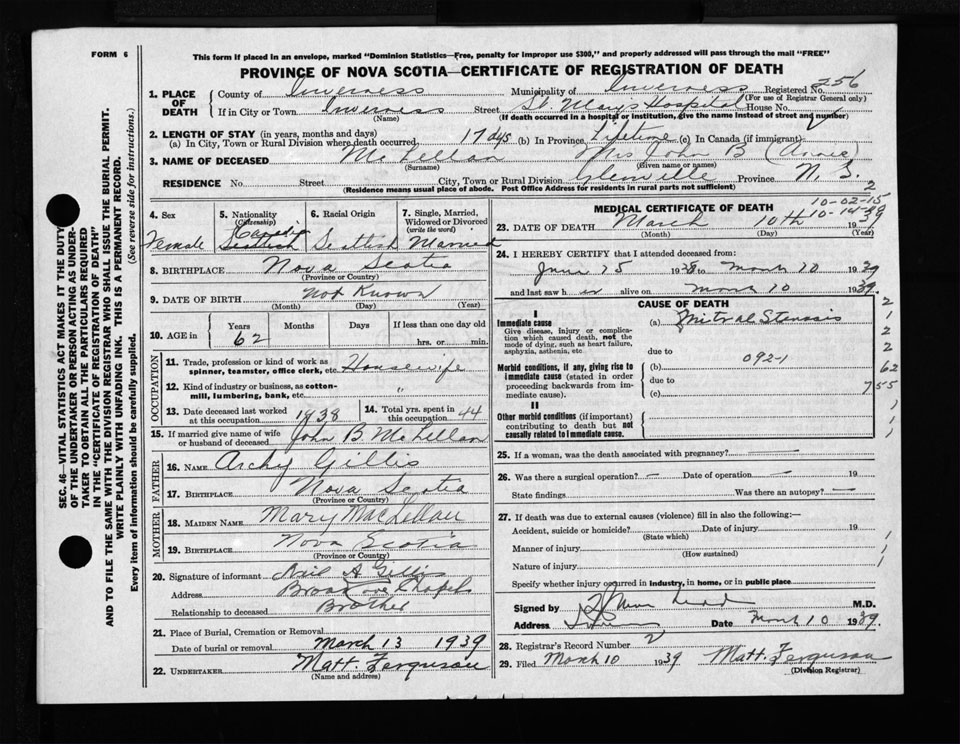 FORM 6
This form if placed in an envelope, marked "Dominion Statistics—Free, penalty for improper use $300," and properly addressed will pass through the mail "FREE"
PROVINCE OF NOVA SCOTIA—CERTIFICATE OF REGISTRATION OF DEATH
256
1. PLACE OF DEATH County of Inverness Municipality of Inverness Registered No.
(For use of Registrar General only)
If in City or Town Inverness Street St. Mary's Hospital House No.
(Name) (If death occurred in a hospital or institution, give the name instead of street and number)
2. LENGTH OF STAY (in years, months and days)
(a) In City, Town or Rural Division where death occurred, 17 dys (b) In Province Lifetime (c) In Canada (if immigrant)
3. NAME OF DECEASED McLellan Mrs John B (Annie)
(Surname) (Given name or names)
RESIDENCE No. Street City, Town or Rural Division Glenville Province N. S.
(Residence means usual place of abode. Post Office Address for residents in rural parts not sufficient)
SEC. 46—VITAL STATISTICS ACT MAKES IT THE DUTY
OF THE UNDERTAKER OR PERSON ACTING AS UNDER-
TAKER TO OBTAIN ALL THE PARTICULARS REQUIRED
IN THE "CERTIFICATE OF REGISTRATION OF DEATH"
AND TO FILE THE SAME WITH THE DIVISION REGISTRAR WHO SHALL ISSUE THE BURIAL PERMIT.
WRITE PLAINLY WITH UNFADING INK. THIS IS A PERMANENT RECORD.
Every item of information should be carefully supplied. (See reverse side for instructions.)
4. Sex
Female
5. Nationality
(Citizenship)
Scottish
6. Racial Origin
Scottish
7. Single, Married, Widowed or Divorced
(write the word)
Married
8. BIRTHPLACE Nova Scotia
(Province or Country)
9. DATE OF BIRTH Not Known
(Month) (Day) (Year)
10. AGE in Years Months Days If less than one day old
62 hrs. or min.
OCCUPATION
11. Trade, profession or kind of work as
spinner, teamster, office clerk, etc. Housewife
12. Kind of industry or business, as cotton-
mill, lumbering, bank, etc. "
13. Date deceased last worked
at this occupation 1938
14. Total yrs. spent in
this occupation 44
15. If married give name of wife
or husband of deceased John B McLellan
FATHER
16. NAME Archy Gillis
17. BIRTHPLACE Nova Scotia
(Province or Country)
MOTHER
18. MAIDEN NAME Mary MacLellan
19. BIRTHPLACE Nova Scotia
(Province or Country)
20. Signature of informant Neil A Gillis
Address Broad Cove Chapel
Relationship to deceased Brother
21. Place of Burial, Cremation or Removal
Date of burial or removal March 13 1939
22. UNDERTAKER Matt. Ferguson
(Name and address)
2
10-02-15
10-14-39
MEDICAL CERTIFICATE OF DEATH
23. DATE OF DEATH March 10th 1939
(Month) (Day) (Year)
24. I HEREBY CERTIFY that I attended deceased from:
June 15 1938 to March 10 1939
and last saw her alive on March 10 1939.
CAUSE OF DEATH
I
Immediate cause (a) Mitral Stenosis
Give disease, injury or complica-
tion which caused death, not the
mode of dying, such as heart failure,
asphyxia, asthenia, etc.
due to
092-1
Morbid conditions, if any, giving rise to (b)
immediate cause (stated in order due to
proceeding backwards from im- (c)
mediate cause).
II
Other morbid conditions (if important)
contributing to death but not
causally related to immediate cause.
2
1
2
2
62
755
1
1
1
25. If a woman, was the death associated with pregnancy?
26. Was there a surgical operation? — Date of operation — 19
State findings Was there an autopsy? —
27. If death was due to external causes (violence) fill in also the following:—
Accident, suicide or homicide? Date of injury 19
(State which)
Manner of injury
(How sustained)
Nature of injury
1
1
1
Specify whether injury occurred in industry, in home, or in public place
Signed by M.D.
Address Date March 10 1939.
28. Registrar's Record Number 2
29. Filed March 10 1939 Matt. Ferguson
(Division Registrar)